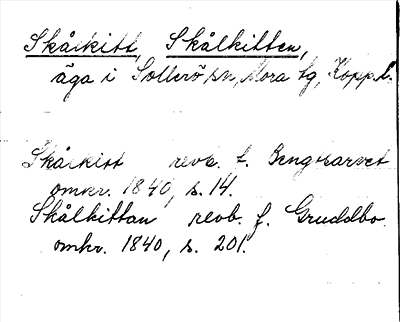 Skålkitt, Skålkitten,
äga i Sollerö sn, Mora tg, Kopp.l.
Skålkitt revb. f. Bengtsarvet
omkr. 1840, s. 14.
Skålkittan revb. f. Gruddbo
omkr. 1840, s. 201.